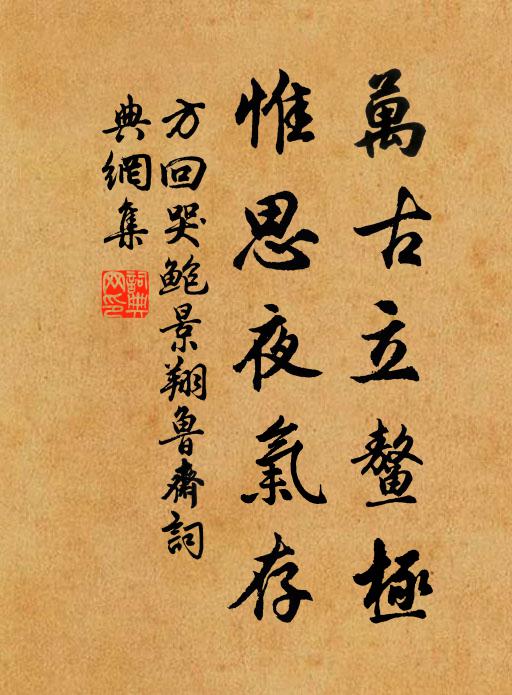 萬古立鳌極
惟思夜氣存
方回哭鲍景翔魯齋詞
典網集
詞典網印